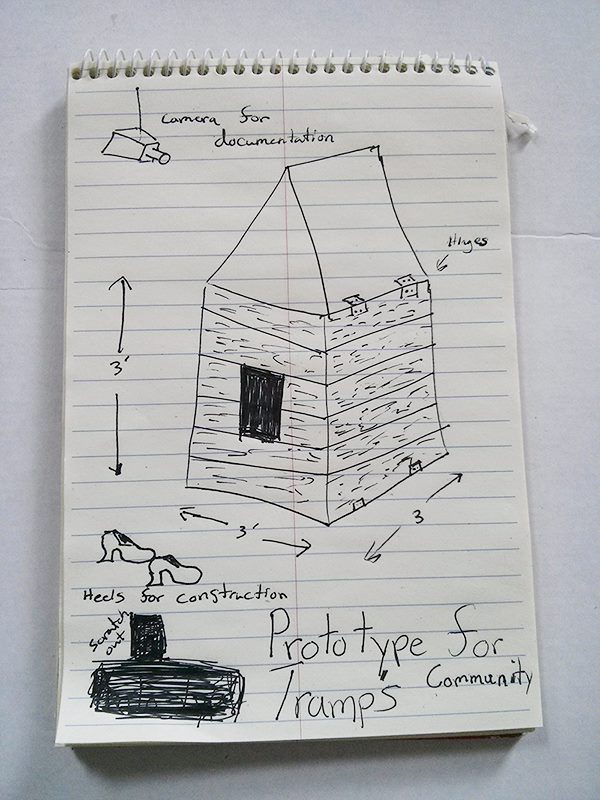 Camera for
documentation
Hinges
3'
3'
3
Heels for construction
Scratch
out
Prototype for
Community
Tramps